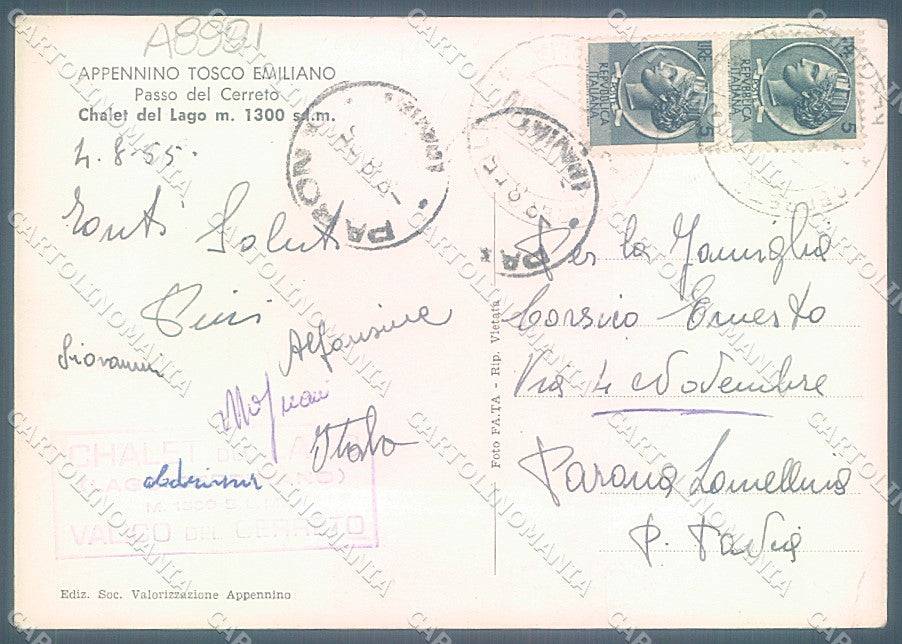 A8991
APPENNINO TOSCO EMILIANO
Passo del Cerreto
Chalet del Lago m. 1300 s.l.m.
4.8.55.
Tanti Saluti
Pini
Giovanni
Alfonsina
Italo
CHALET DEL LAGO
M. 1300 S.
VALICO DEL CERRETO
Ediz. Soc. Valorizzazione Appennino
Foto FA.TA - Rip. Vietata
LIRE 5
REPUBBLICA ITALIANA
LIRE 5
REPUBBLICA ITALIANA
PARON
Per la Famiglia
Corsico Ernesto
Via 4 Novembre
Parona Lomellina
P. Pavia
CARTOLINOMANIA